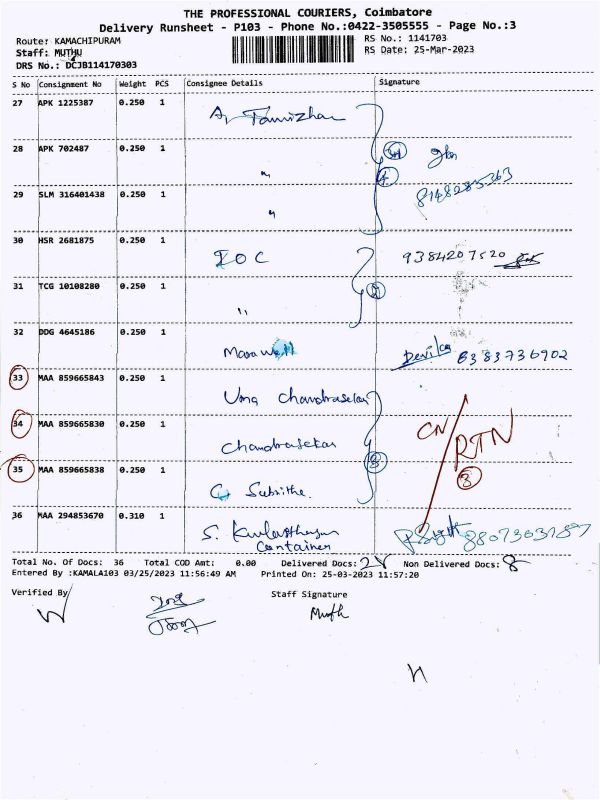 THE PROFESSIONAL COURIERS, Coimbatore
Delivery Runsheet - P103 - Phone No.:0422-3505555 - Page No.:3
Route: KAMACHIPURAM
RS No.: 1141703
Staff: MUTHU
RS Date: 25-Mar-2023
DRS No.: DCJB114170303
S No Consignment No Weight PCS Consignee Details Signature
27 APK 1225387 0.250 1
28 APK 702487 0.250 1 "
29 SLM 316401438 0.250 1 "
8148285363
30 HSR 2681875 0.250 1 IOC 9384207520
31 TCG 10108280 0.250 1 "
32 DDG 4645186 0.250 1 6383736902
33 MAA 859665843 0.250 1 Uma Chandrasekar
34 MAA 859665830 0.250 1 Chandrasekar CN/RTN
35 MAA 859665838 0.250 1 3
36 MAA 294853670 0.310 1 S.
Container
Total No. Of Docs: 36 Total COD Amt: 0.00 Delivered Docs: 28 Non Delivered Docs: 8
Entered By :KAMALA103 03/25/2023 11:56:49 AM Printed On: 25-03-2023 11:57:20
Verified By Staff Signature
Muth